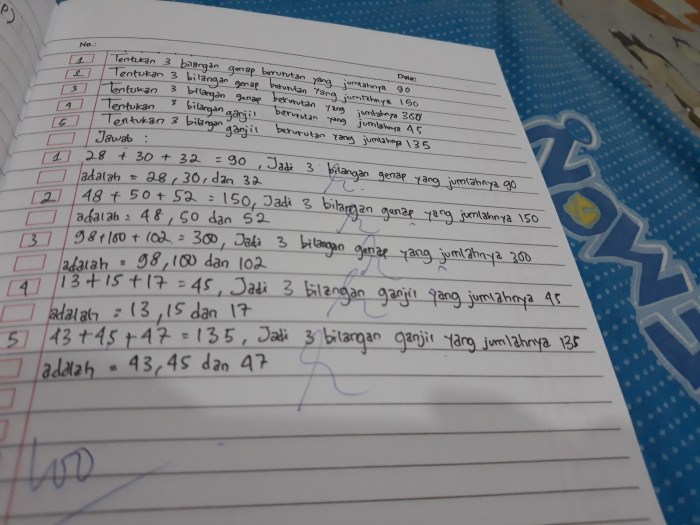 No.:
Date:
1 Tentukan 3 bilangan genap berurutan yang jumlahnya 90
2 Tentukan 3 bilangan genap berurutan yang jumlahnya 150
3 Tentukan 3 bilangan genap berurutan yang jumlahnya 300
4 Tentukan 3 bilangan ganjil berurutan yang jumlahnya 45
5 Tentukan 3 bilangan ganjil berurutan yang jumlahnya 135
Jawab :
1 28 + 30 + 32 = 90, Jadi 3 bilangan genap yang jumlahnya 90
adalah = 28, 30, dan 32
2 48 + 50 + 52 = 150, Jadi 3 bilangan genap yang jumlahnya 150
adalah = 48, 50 dan 52
3 98 + 100 + 102 = 300, Jadi 3 bilangan genap yang jumlahnya 300
adalah = 98, 100 dan 102
4 13 + 15 + 17 = 45, Jadi 3 bilangan ganjil yang jumlahnya 45
adalah = 13, 15 dan 17
5 43 + 45 + 47 = 135, Jadi 3 bilangan ganjil yang jumlahnya 135
adalah = 43, 45 dan 47
100